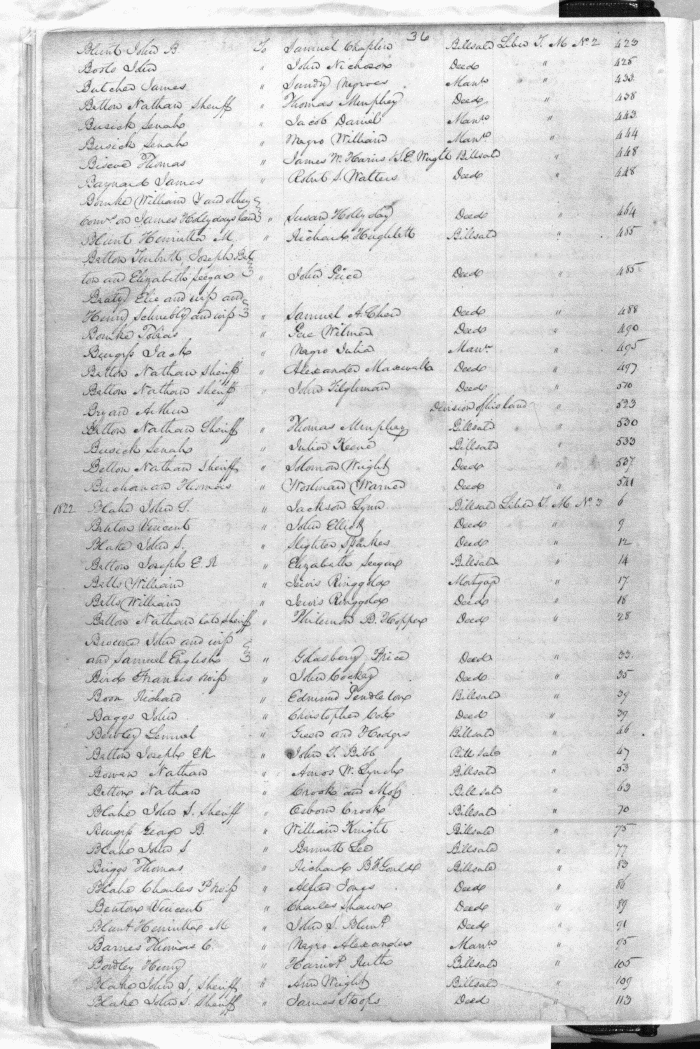 36
Blunt John B To Samuel Chaplin Billsale Liber T. M. No 2 423
Boots John " John Nicholson Deed " 425
Butcher James " Sundry Negroes Manu " " 433
Betton Nathan Sheriff " Thomas Murphey Deed " 438
Busick Senah " Jacob Daniel Manu " 443
Busick Senah " Negro William Manu " 444
Biscoe Thomas " James W. Harris & S. E. Wright Billsale " 448
Baynard James " Robert S. Walters Deed " 448
Bourke William Y and others
Comrs on James Hollydays land " Susan Hollyday Deed " 464
Blunt Henrietta M " Richard Billsale " 485
Betton Turbutt Joseph Bet
ton and Elizabeth Seegar " John Price Deed " 485
Elie and wife and
Henry Schnebly and wife " Samuel A. Chew Deed " 488
Bourke Tobias " Wilmer Deed " 490
Burgess Jack " Negro Julia Manu " 495
Betton Nathan Sheriff " Alexander Maxwell Deed " 497
Betton Nathan Sheriff " John Tilghman Deed " 510
Bryan Arthur Division of his land " 523
Betton Nathan Sheriff " Thomas Murphey Billsale " 530
Busick Senah " Julia Keene Billsale " 533
Betton Nathan Sheriff " Solomon Wright Deed " 537
Buchanan Thomas " Warner Deed " 541
1822 Blake John S. " Jackson Lynn Billsale Liber T. M. No 3 6
Benton Vincent " John Elliott Deed " 9
Blake John S. " Sparkes Deed " 12
Betton Joseph E R " Elizabeth Seegar Billsale " 14
Betts William " Ringgold Mortgage " 17
Betts William " Ringgold Deed " 18
Betton Nathan late Sheriff " Philemon B. Hopper Deed " 28
Brown John and wife
and Samuel English " Goldsberry Price Deed " 33
Bird Frances wife " John Deed " 35
Boon Richard " Edmund Pendleton Billsale " 39
Baggs John " Christopher Cox Deed " 39
Lemuel " Green and Hodges Billsale " 46
Betton Joseph ER " John T. Bibb Billsale " 47
Bowen Nathan " Amos W. Lynch Billsale " 53
Betton Nathan " Crook and Moss Billsale " 63
Blake John S. Sheriff " Osborn Crook Billsale " 70
Burgess George B. " William Knight Billsale " 75
Blake John S " Lee Billsale " 77
Biggs Thomas " Richard B. Gould Billsale " 83
Blake Charles P wife " Alfred Jones Deed " 86
Benton Vincent " Charles Shawn Deed " 89
Blunt Henrietta M " John S. Blunt Deed " 91
Barnes Thomas C. " Negro Alexander Manu " 95
Bordley Henry " Harriet Ruth Billsale " 105
Blake John S. Sheriff " Ann Wright Billsale " 109
Blake John S. Sheriff " James Stops Deed " 113